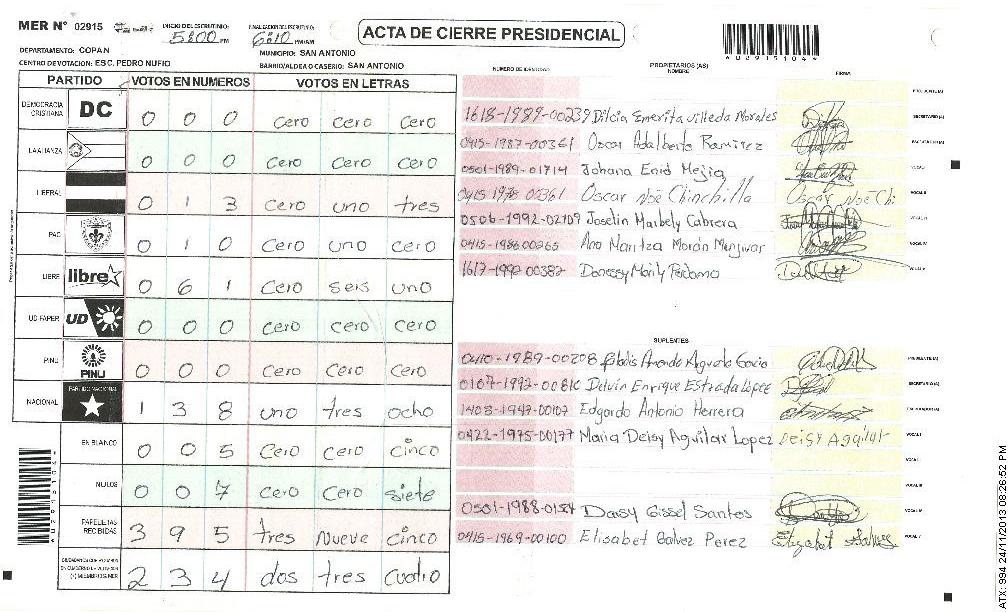 MER N° 02915
INICIO DEL ESCRUTINIO: 5:00 PM
FINALIZACION DEL ESCRUTINIO: 6:10 PM/AM
ACTA DE CIERRE PRESIDENCIAL
A029151044
DEPARTAMENTO: COPAN
MUNICIPIO: SAN ANTONIO
CENTRO DE VOTACION: ESC. PEDRO NUFIO
BARRIO/ALDEA O CASERIO: SAN ANTONIO
PARTIDO VOTOS EN NUMEROS VOTOS EN LETRAS
DEMOCRACIA CRISTIANA DC 0 0 0 cero cero cero
LA ALIANZA 0 0 0 cero cero cero
LIBERAL 0 1 3 cero uno tres
PAC 0 1 0 cero uno cero
LIBRE libre 0 6 1 cero seis uno
UD FAPER UD 0 0 0 cero cero cero
PINU PINU 0 0 0 cero cero cero
NACIONAL PARTIDO NACIONAL 1 3 8 uno tres ocho
EN BLANCO 0 0 5 cero cero cinco
NULOS 0 0 7 cero cero siete
PAPELETAS RECIBIDAS 3 9 5 tres nueve cinco
(+) MIEMBROS MER 2 3 4 dos tres cuatro
A029151044
NUMERO DE IDENTIDAD PROPIETARIOS (AS) NOMBRE FIRMA
PRESIDENTE (A)
1618-1989-00239 Dilcia Emerita Villeda Morales SECRETARIO (A)
0415-1987-00361 Oscar Adalberto Ramirez ESCRUTADOR (A)
0501-1989-01714 Johana Enid Mejia VOCAL I
0415 1978 00361 Oscar Noé Chinchilla Oscar Noe Chi VOCAL II
0506-1992-02109 Joselin Maibely Cabrera VOCAL III
0415-1986 00265 Ana Maritza Morán Menjivar VOCAL IV
1617-1992 00382 Perdomo VOCAL V
SUPLENTES
0410-1989-00208 PRESIDENTE (A)
0107-1992-00810 Delvin Enrique Estrada López SECRETARIO (A)
1408-1947-00107 Edgardo Antonio Herrera ESCRUTADOR (A)
0422-1975-00177 Maria Deisy Aguilar Lopez Deisy Aguilar VOCAL I
VOCAL II
VOCAL III
0501-1988-0154 Daisy Gissel Santos VOCAL IV
0415-1969-00100 Elisabet Galvez Perez VOCAL V
ATX: 994 24/11/2013 08:26:52 PM